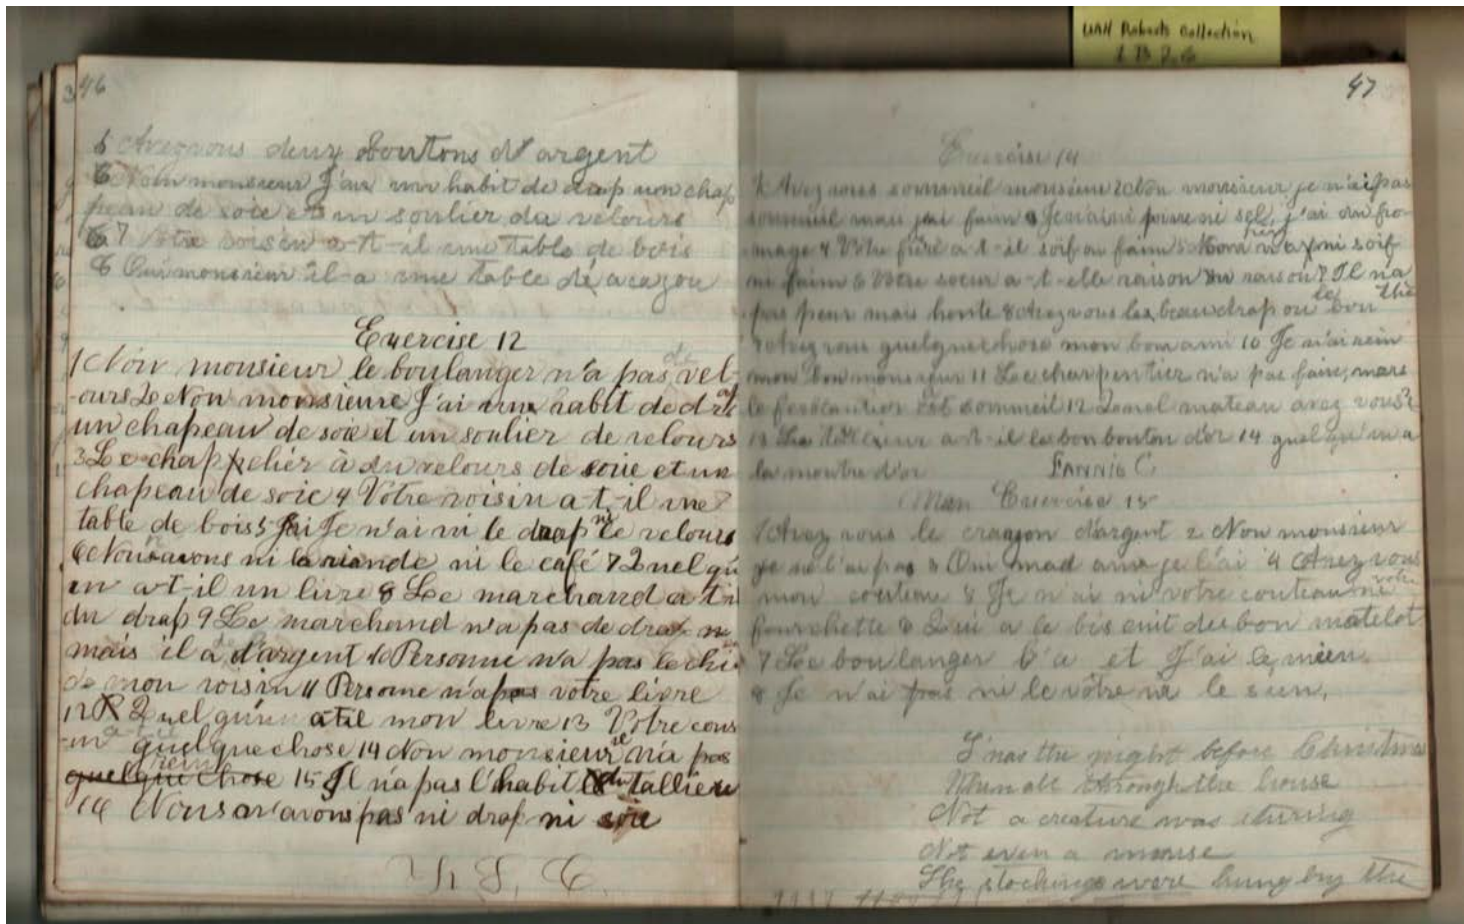 UAH Roberts Collection
1 B 2 6
46
5 Avez vous deux boutons d'argent
6 Non monsieur J'ai un habit de drap un chap
peau de soie et un soulier du velours
7 Votre voisin a-t-il une table de bois
8 Oui monsieur il-a une table de acazou
Exercise 12
1 Non monsieur le boulanger n'a pas de vel-
-ours 2 Non monsieure J'ai une habit de dra
un chapeau de soie et un soulier de velours
3 Le chapelier à du velours de soie et un
chapeau de soie 4 Votre voisin a-t-il une
table de bois 5 Je n'ai ni le drap ni le velours
6 Nous n'avons ni la viande ni le café 7 Quelqu'
un a-t-il un livre 8 Le marchand a-t-i
du drap 9 Le marchand n'a pas de drap
mais il a d'argent 10 Personne n'a pas le chi
de mon voisin 11 Persone n'a pas votre livre
12 Quelqu'un atil mon livre 13 Votre cous
-in a-t-il quelque chose 14 Non monsieur n'a pas
quelque chose 15 Il n'a pas l'habit du tallieu
16 Nous n'avons pas ni drap ni soie
47
Exercise 14
1 Avez vous sommeil monsieur 2 Non monsieur je n'ai pas
sommeil mais jai faim 3 Je n'ai ni poivre ni sel, j'ai du fro-
mage 4 Votre frère a-t-il soif ou faim 5 Mon n'a ni soif
ni faim 6 Votre soeur a-t-elle raison 7 Il n'a
pas peur mais honte 8 Avez vous le beau drap ou le bon thé
9 Avez vous quelque chose mon bon ami 10 Je n'ai rein
mon bon monsieur 11 Le charpentier n'a pas faim, mais
le est sommeil 12 Quel mateau avez vous?
13 Le a-t-il le bon bouton d'or 14 quelqu'un a
la montre d'or FANNIE C
Exercise 15
1 Avez vous le crayon d'argent 2 Non monsieur
je ne l'ai pas 3 Oui mad ame je l'ai 4 Avez vous
mon couteau 5 Je n'ai ni votre couteau ni votre
fourchette 6 Qui a le bis cuit du bon matelot
7 Le boulanger l'a et J'ai le mien
8 Je n'ai pas ni le vôtre ni le sien,
T'was the night before Christmas
When all through the house
Not a creature was sturing
Not even a mouse
The stockings were hung by the